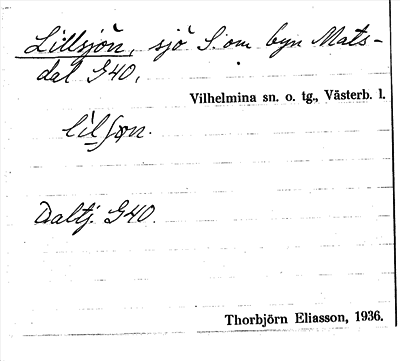 Lillsjön, sjö S. om byn Mats-
dal G40.
Vilhelmina sn. o. tg., Västerb. l.
Daltj. G40.
Thorbjörn Eliasson, 1936.